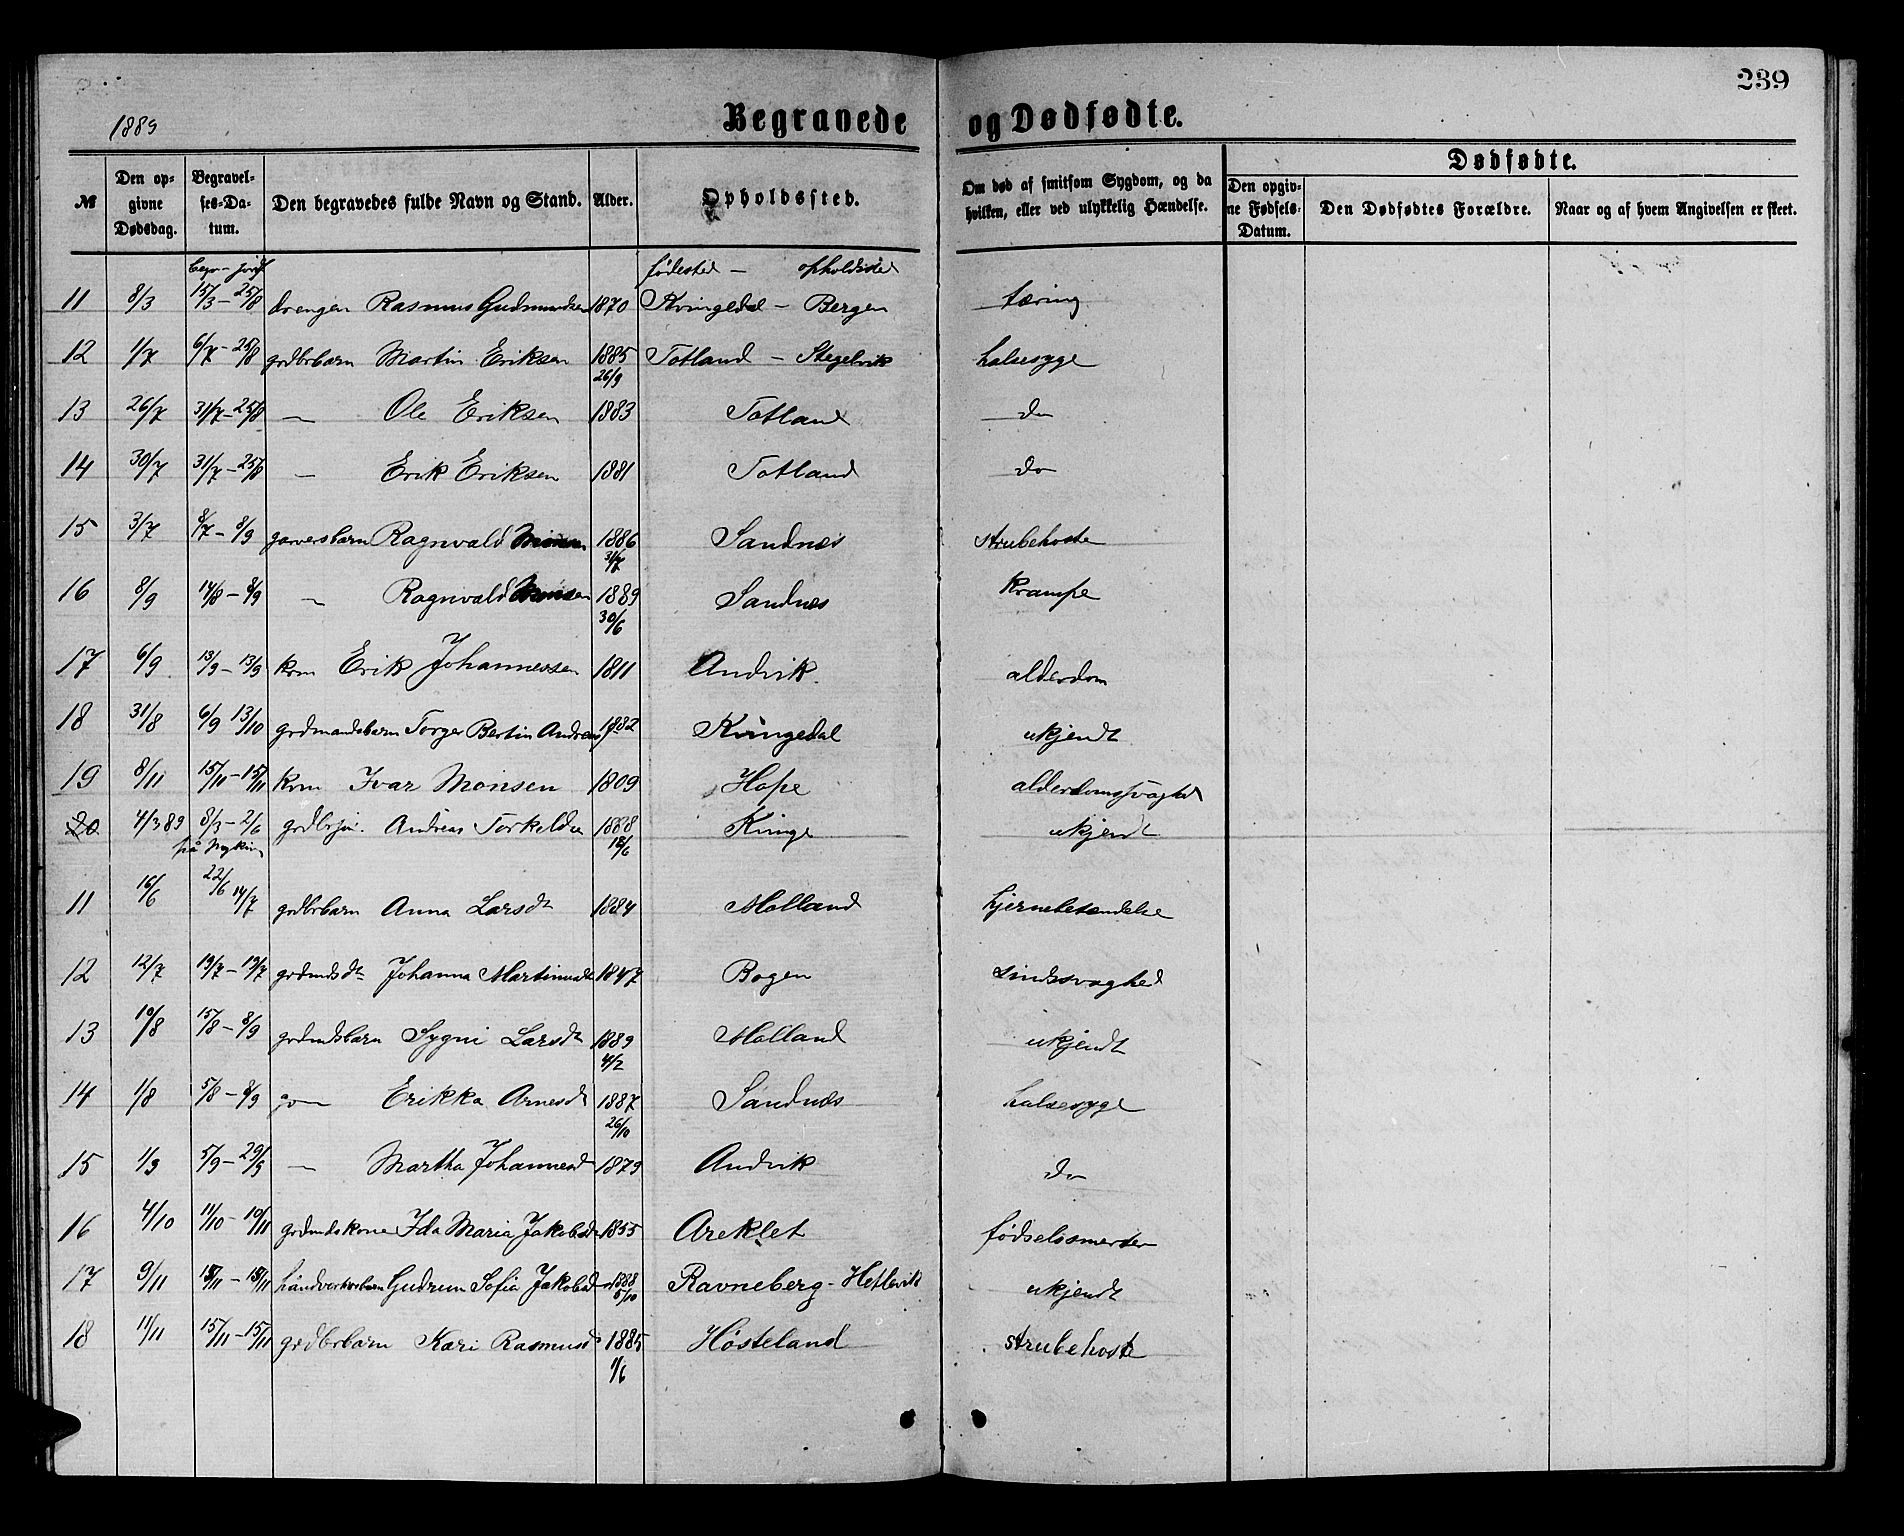 239
1889
Begravede og Dødfødte.
Dødfødte.
№ | Den opgivne Dødsdag. | Begravelses-Datum. | Den begravedes fulde Navn og Stand. | Alder. | Opholdssted. | Om død af smitsom Sygdom, og da hvilken, eller ved ulykkelig Hændelse. | Den opgivne Fødsels-Datum. | Den Dødfødtes Forældre. | Naar og af hvem Angivelsen er skeet.
begr – jordf fødested – opholdssted
11 8/3 15/3 – 25/8 drengen Rasmus Gudmundsen 1870 Kvingedal – Bergen tæring
12 1/7 6/7 – 25/8 grdbrbarn Martin Eriksen 1885 26/9 Totland – Stegelvik halsesyge
13 26/7 31/7 – 25/8 — Ole Eriksen 1883 Totland do
14 30/7 31/7 – 25/8 — Erik Eriksen 1881 Totland do
15 3/7 8/7 – 8/9 garversbarn Ragnvald 1886 31/7 Sandnes strubehoste
16 8/9 14/8 – 8/9 — Ragnvald 1889 30/6 Sandnes krampe
17 6/9 13/9 – 13/9 krm Erik Johannessen 1811 Andvik alderdom
18 31/8 6/9 13/10 grdmandsbarn Torger Bertin Andreas 1882 Kvingedal ukjendt
19 8/11 15/11 – 15/11 krm Ivar Monsen 1809 Hope alderdomssvaghed
20 4/3 89 8/3 – 2/6 grdbr Andreas Torkelds 1888 18/6 Kvinge ukjendt
på
11 16/6 22/6 14/7 grdbrbarn Anna Larsdt 1884 Molland hjernebetændelse
12 12/7 19/7 – 19/7 grdmdsdt Johanna Martinusdt 1847 Bogen sindssvaghed
13 10/8 15/8 – 8/9 grdmdsbarn Sygni Larsdt 1889 4/2 Molland ukjendt
14 1/8 5/8 – 8/9 Erikka Arnesdt 1887 26/10 Sandnes halsesyge
15 1/9 5/9 – 29/9 — Martha Johannesdt 1879 Andvik do
16 4/10 11/10 – 10/11 grdmdskone Ida Maria Jakobsdt 1855 Areklet fødselssmerter
17 9/11 15/11 – 15/11 håndverkerbarn Gudrun Sofia Jakobsd 1888 5/10 Ravneberg – Hetlevik ukjendt
18 11/11 15/11 – 15/11 grdbrbarn Kari Rasmusd 1885 1/6 Høsteland strubehoste